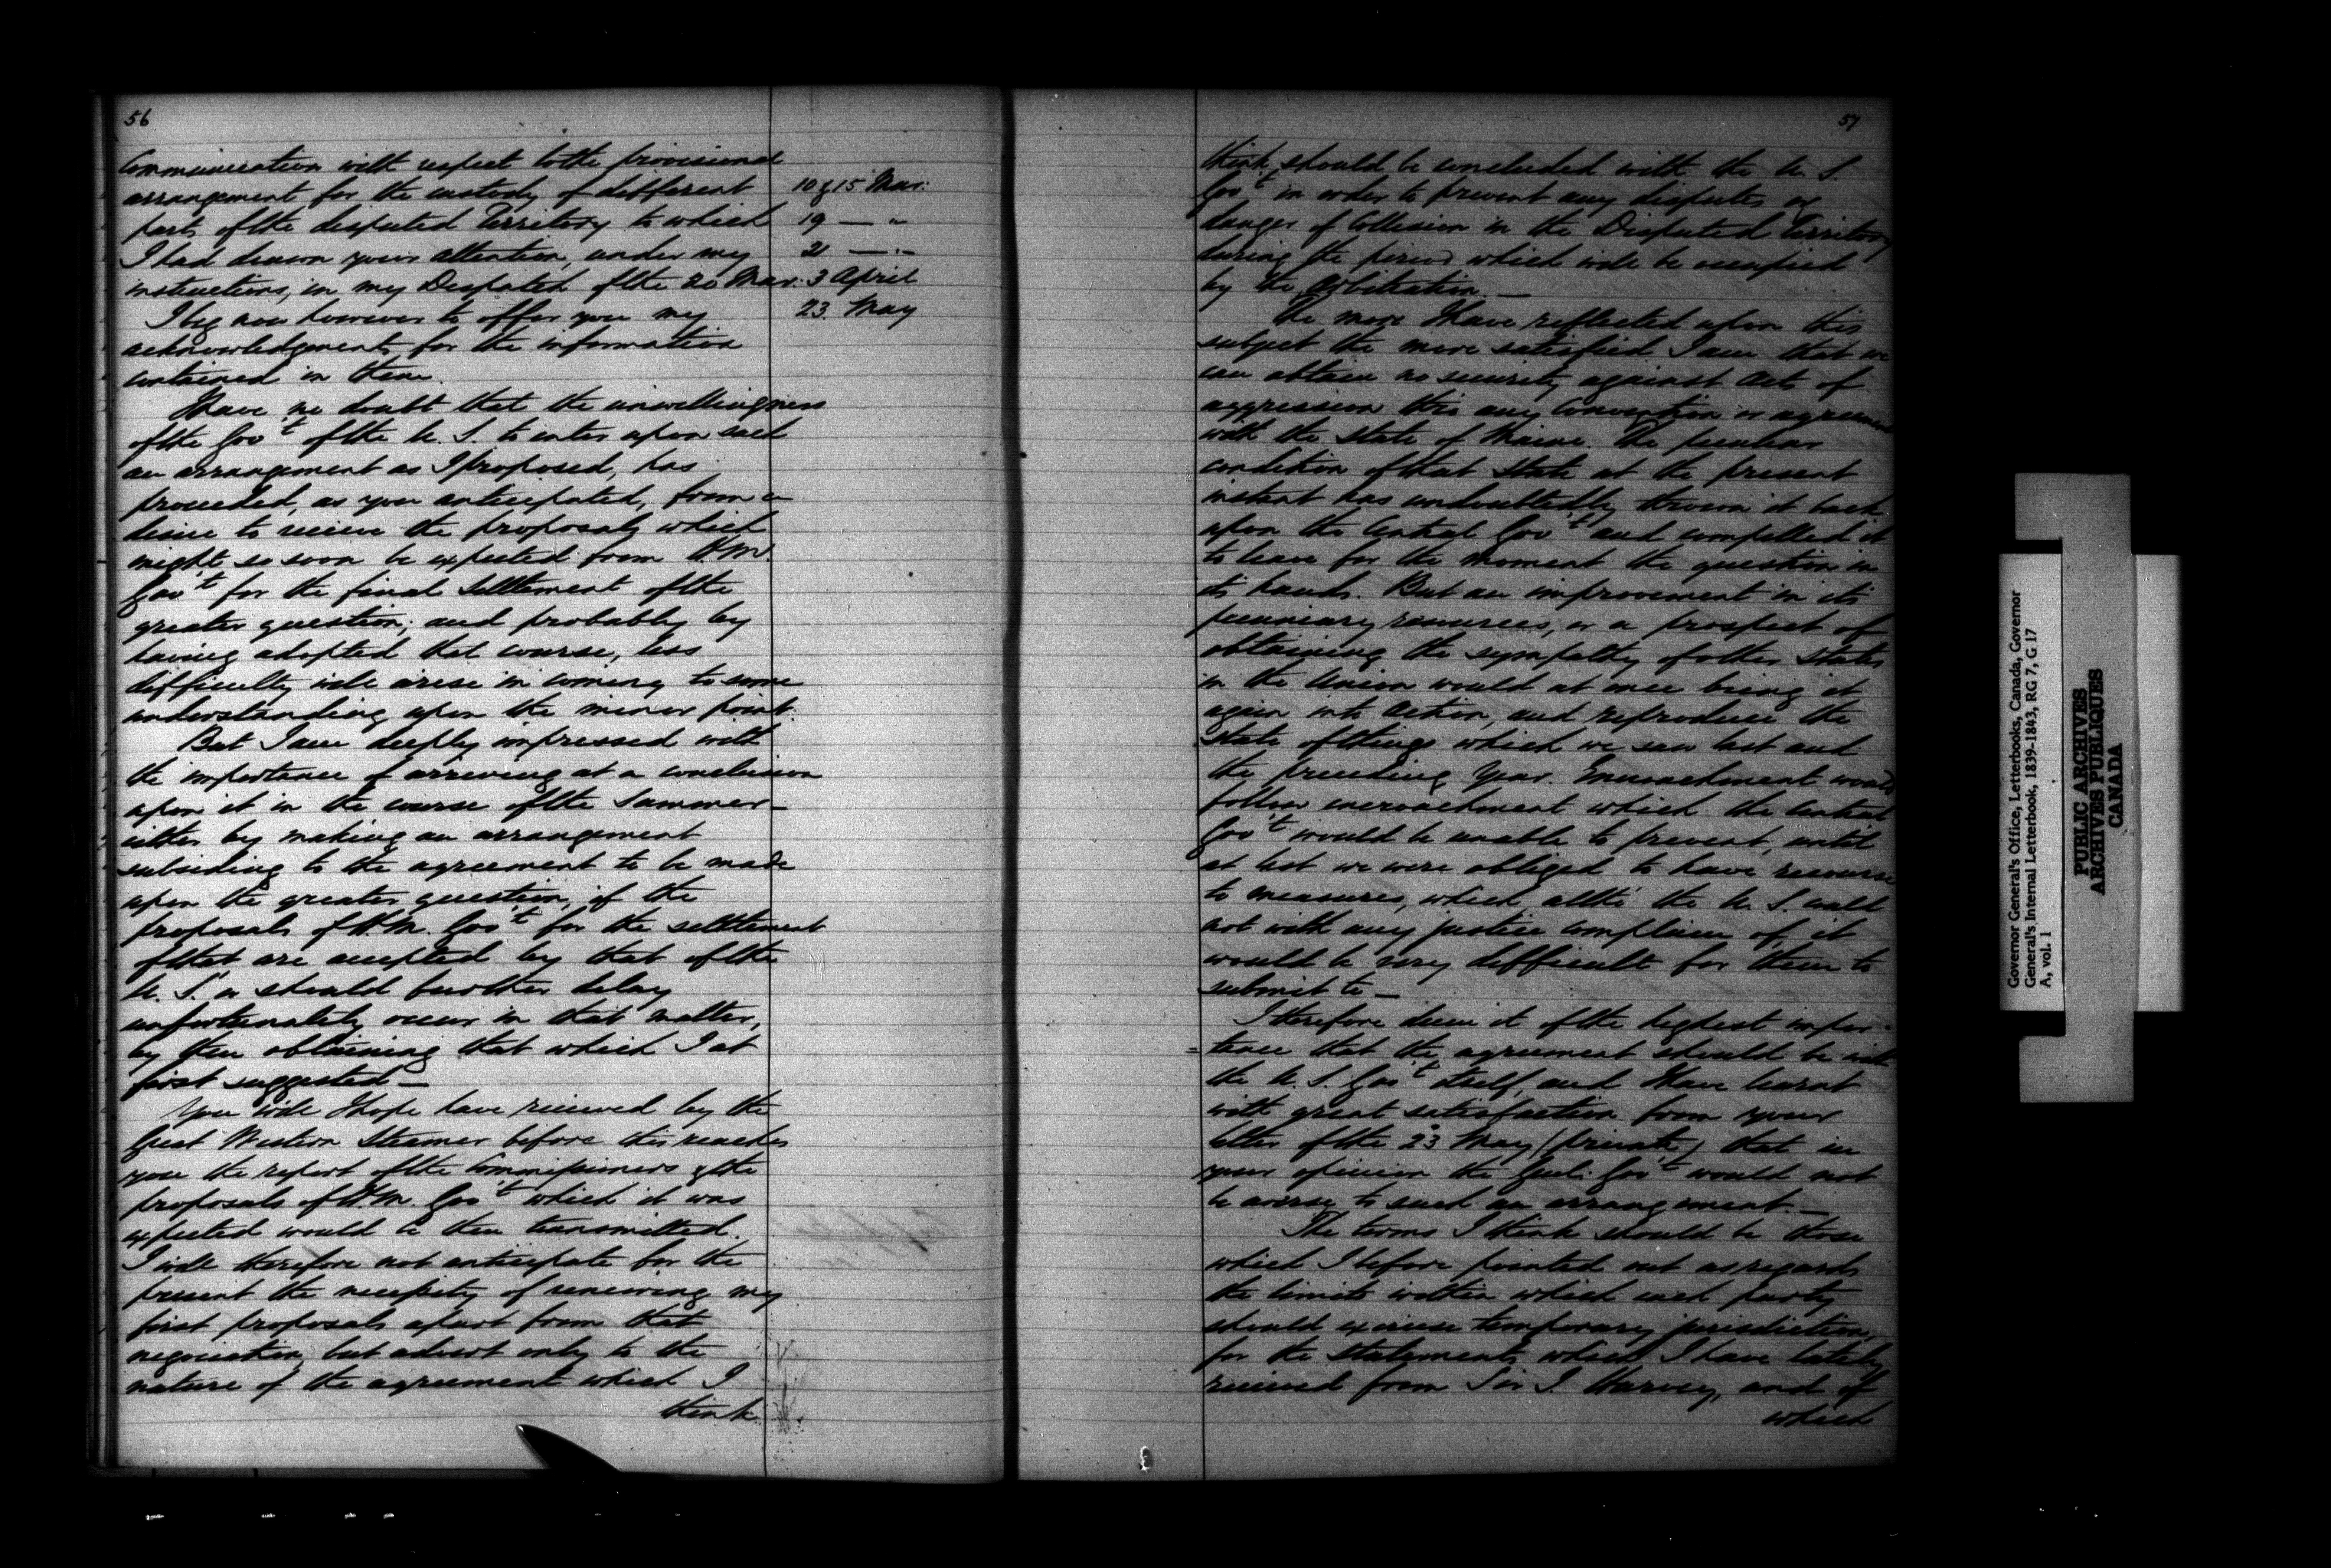 56
Communication with respect to the provisional
arrangement for the custody of different
parts of the disputed Territory to which
I had drawn your attention, under my
instructions, in my Despatch of the 20 Mar.
10 & 15 Mar:
19 — "
21 — "
3 April
23. May
I beg now however to offer you my
acknowledgments for the information
contained in them.
I have no doubt that the unwillingness
of the Govt of the U. S. to enter upon such
an arrangement as I proposed, has
proceeded, as you anticipated, from a
desire to receive the proposals which
might so soon be expected from H.M.
Govt for the final settlement of the
greater question; and probably by
having adopted that course, less
difficulty will arise in coming to some
understanding upon the minor point.
But I am deeply impressed with
the importance of arriving at a conclusion
upon it in the course of the Summer—
either by making an arrangement
subsiding to the agreement to be made
upon the greater question, if the
proposals of H.M. Govt for the settlement
of that are accepted by that of the
U. S. or should further delay
unfortunately occur in that matter,
by then obtaining that which I at
first suggested—
You will I hope have received by the
Great Western Steamer before this reaches
you the report of the Commissioners & the
proposals of H.M. Govt which it was
expected would be then transmitted.
I will therefore not anticipate for the
present the necessity of renewing my
first proposals apart from that
negociation, but advert only to the
nature of the agreement which I
think
57
think should be concluded with the U. S.
Govt in order to prevent any disputes or
danger of Collision in the Disputed Territory
during the period which will be occupied
by the Arbitration.—
The more I have reflected upon this
subject the more satisfied I am that we
can obtain no security against Acts of
aggression thro any Convention or agreement
with the State of Maine. The peculiar
condition of that State at the present
instant has undoubtedly thrown it back
upon the Central Govt and compelled it
to leave for the moment the question in
its hands. But an improvement in its
pecuniary resources, or a prospect of
obtaining the sympathy of other States
in the Union would at once bring it
again into Action, and reproduce the
state of things which we saw last and
the preceding Year. Encroachment would
follow encroachment which the Central
Govt would be unable to prevent, until
at last we were obliged to have recourse
to measures, which altho' the U. S. could
not with any justice complain of, it
would be very difficult for them to
submit to—
I therefore deem it of the highest impor-
=tance that the agreement should be with
the U. S. Govt itself, and I have learnt
with great satisfaction from your
letter of the 23 May (private) that in
your opinion the Genl. Govt would not
be averse to such an arrangement.—
The terms I think should be those
which I before pointed out as regards
the limits within which each party
should exercise temporary jurisdiction,
for the statements which I have lately
received from Sir J. Harvey, and of
which
Governor General's Office, Letterbooks, Canada, Governor
General's Internal Letterbook, 1839-1843, RG 7, G 17
A, vol. 1
PUBLIC ARCHIVES
ARCHIVES PUBLIQUES
CANADA